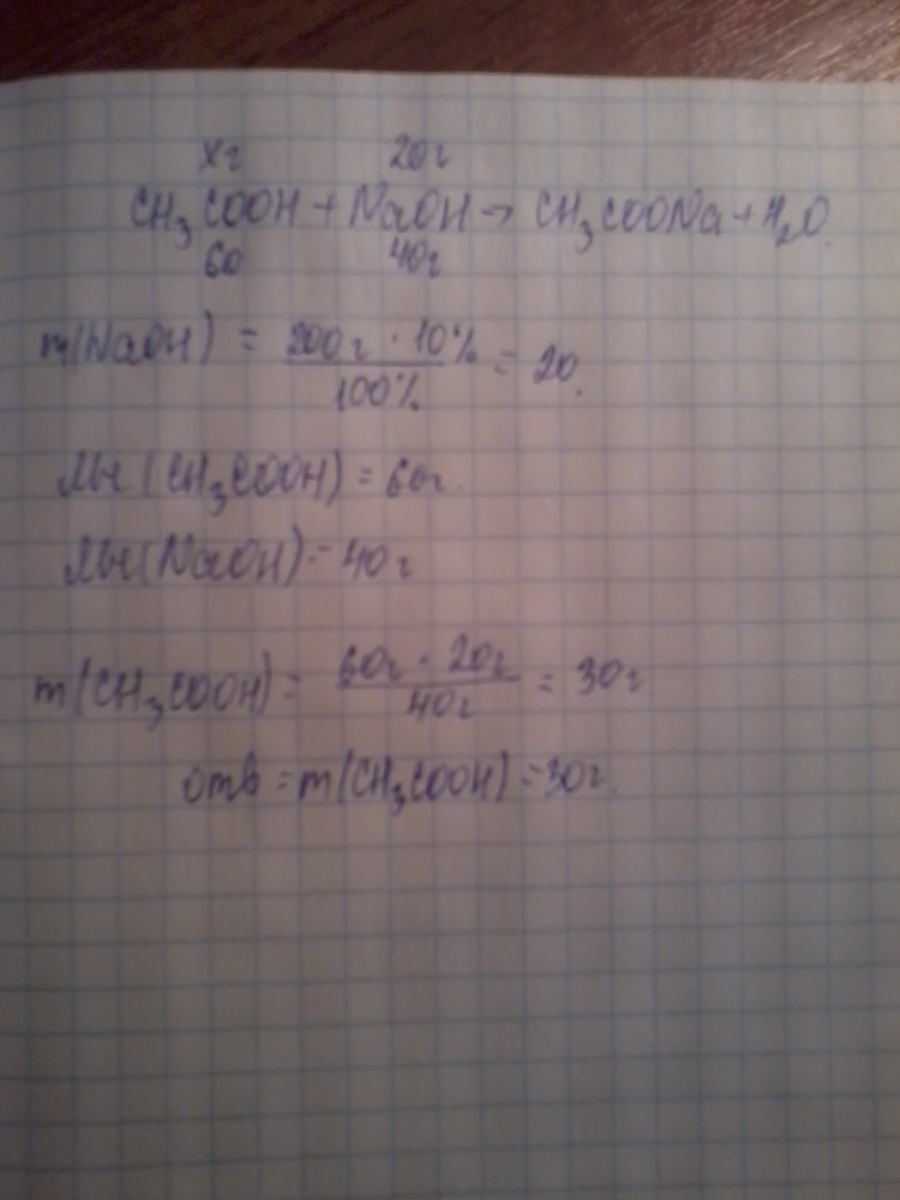 xг 20г
CH₃COOH + NaOH → CH₃COONa + H₂O.
60 40г
m(NaOH) = 200г · 10% / 100% = 20.
Mч (CH₃COOH) = 60г.
Mч (NaOH) = 40г
m(CH₃COOH) = 60г · 20г / 40г = 30г
отв = m(CH₃COOH) = 30г.